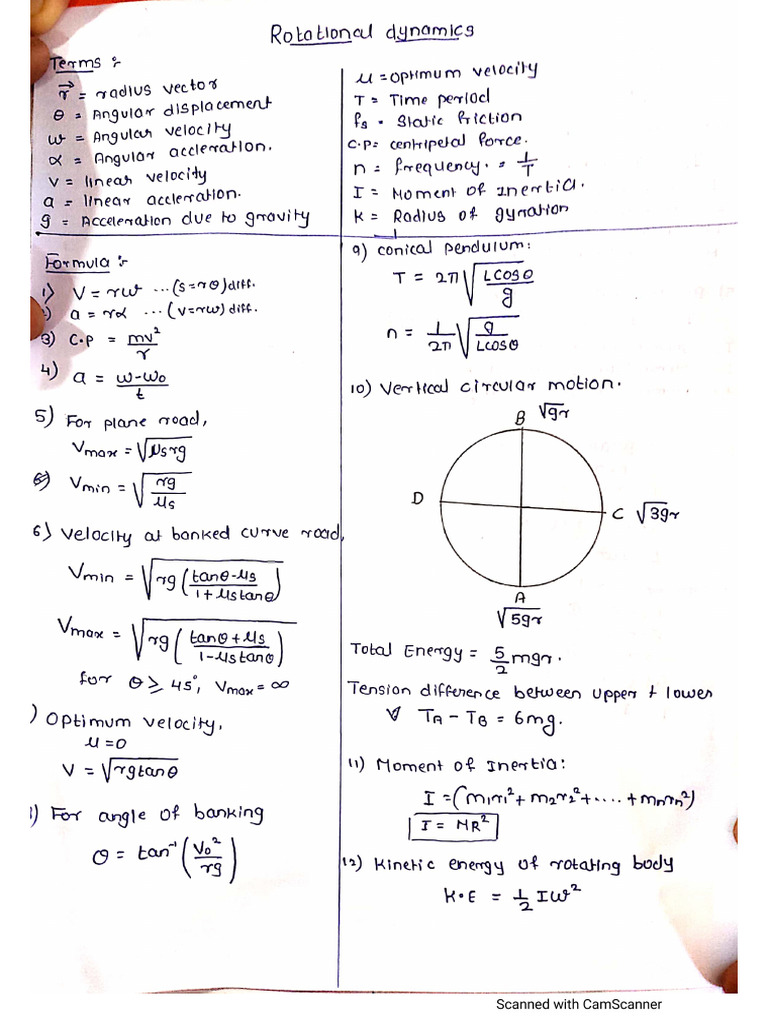 Rotational dynamics
Terms :-
r⃗ = radius vector
θ = Angular displacement
ω = Angular velocity
α = Angular accleration.
v = linear velocity
a = linear accleration.
g = Accleration due to gravity
μ = optimum velocity
T = Time period
fs = Static friction
C.P = centripetal force.
n = frequency. = 1/T
I = Moment of inertia.
K = Radius of gyration
Formula :-
1) V = rω ...(s=rθ) diff.
) a = rα ...(v=rω) diff.
3) C.P = mv²/r
4) a = ω-ω₀/t
5) For plane road,
Vmax = √μsrg
Vmin = √rg/μs
6) Velocity at banked curve road,
Vmin = √rg(tanθ-μs/1+μstanθ)
Vmax = √rg(tanθ+μs/1-μstanθ)
for θ ≥ 45°, Vmax = ∞
) Optimum velocity,
μ=0
V = √rgtanθ
) For angle of banking
θ = tan⁻¹(V₀²/rg)
9) conical pendulum:
T = 2π√Lcosθ/g
n = 1/2π √g/Lcosθ
10) Vertical circular motion.
B √gr
D
C √3gr
A
√5gr
Total Energy = 5/2 mgr.
Tension difference between upper & lower
∀ TA - TB = 6mg.
11) Moment of Inertia:
I = (m₁r₁² + m₂r₂² + .... + mnrn²)
I = MR²
12) Kinetic energy of rotating body
K.E = 1/2 Iω²
Scanned with CamScanner